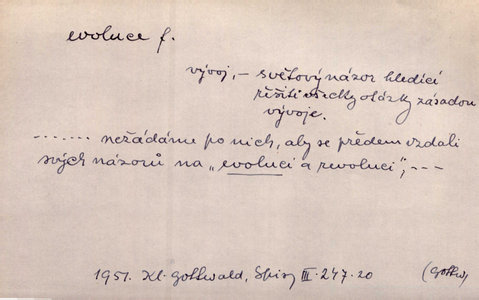 evoluce f.
vývoj, – světový názor hledící
řešiti všecky otázky zásadou
vývoje.
....... nežádáme po nich, aby se předem vzdali
svých názorů na „evoluci a revoluci", - - -
1951. Kl. Gottwald, Spisy III. 247.20
(Gottw)